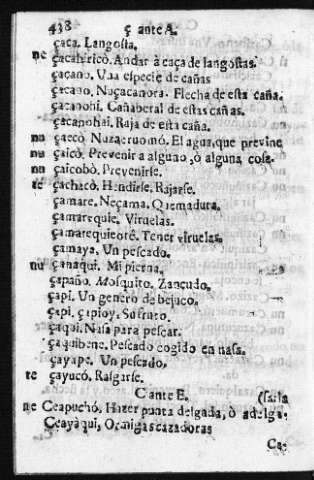 438 ç ante A.
çaca. Langosta.
ne çacahiricò. Andar à caça de langostas.
çacano. Una especie de cañas
çacano. Nuçacanora. Flecha de esta caña.
çacanohi. Cañaberal de estas cañas.
çacanohai. Raja de esta caña.
nu çaecò. Nuzaeruomó. El agua, que previne
nu çaicò. Prevenir a alguno, ò alguna cosa.
nu çaicobò. Prevenirse.
te çachacò. Hendirse. Rajarse.
çamare. Neçama. Quemadura.
çamarequie. Viruelas.
çamarequieotê. Tener viruelas.
çamaya. Un pescado.
nu çanaqui. Mi pierna.
çapaño. Mosquito. Zancudo.
çapi. Un genero de bejuco.
çapi, çapioy. Sufruto.
çaqui. Nasa para pescar.
çaquibene. Pescado cogido en nasa.
çayape. Un pescado.
te çayucó. Rasgarse.
C ante E. (sarla
ne Ceapuchó. Hazer punta delgada, ò adelga-
Ceayàqui, Ormigas cazadoras
Ce-